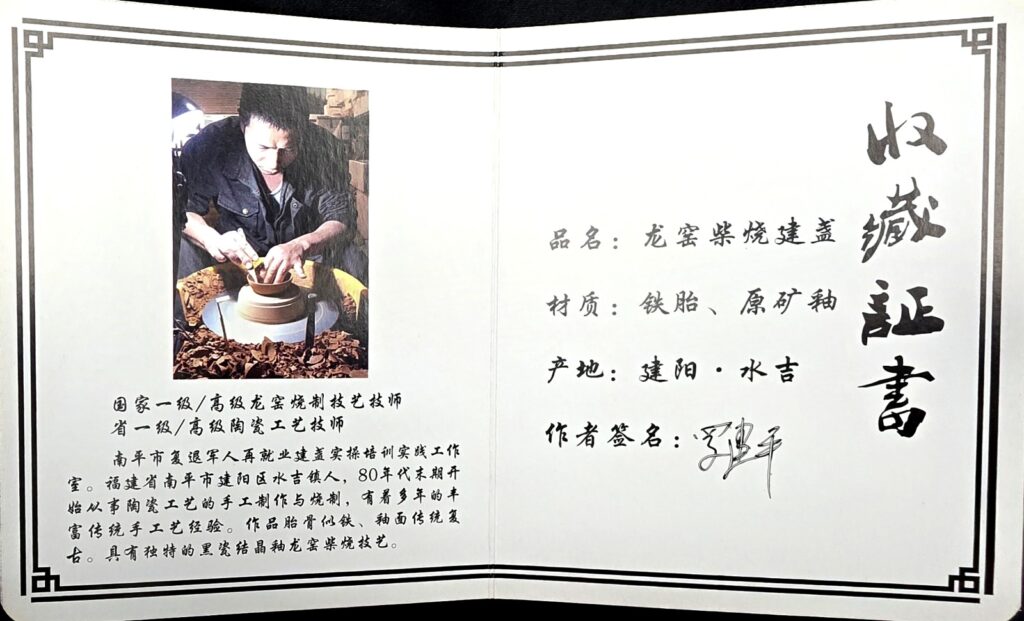 国家一级/高级龙窑烧制技艺技师
省一级/高级陶瓷工艺技师
南平市复退军人再就业建盏实操培训实践工作
室。福建省南平市建阳区水吉镇人，80年代末期开
始从事陶瓷工艺的手工制作与烧制，有着多年的丰
富传统手工艺经验。作品胎骨似铁、釉面传统复
古。具有独特的黑瓷结晶釉龙窑柴烧技艺。
收藏証書
品名：龙窑柴烧建盏
材质：铁胎、原矿釉
产地：建阳·水吉
作者签名：